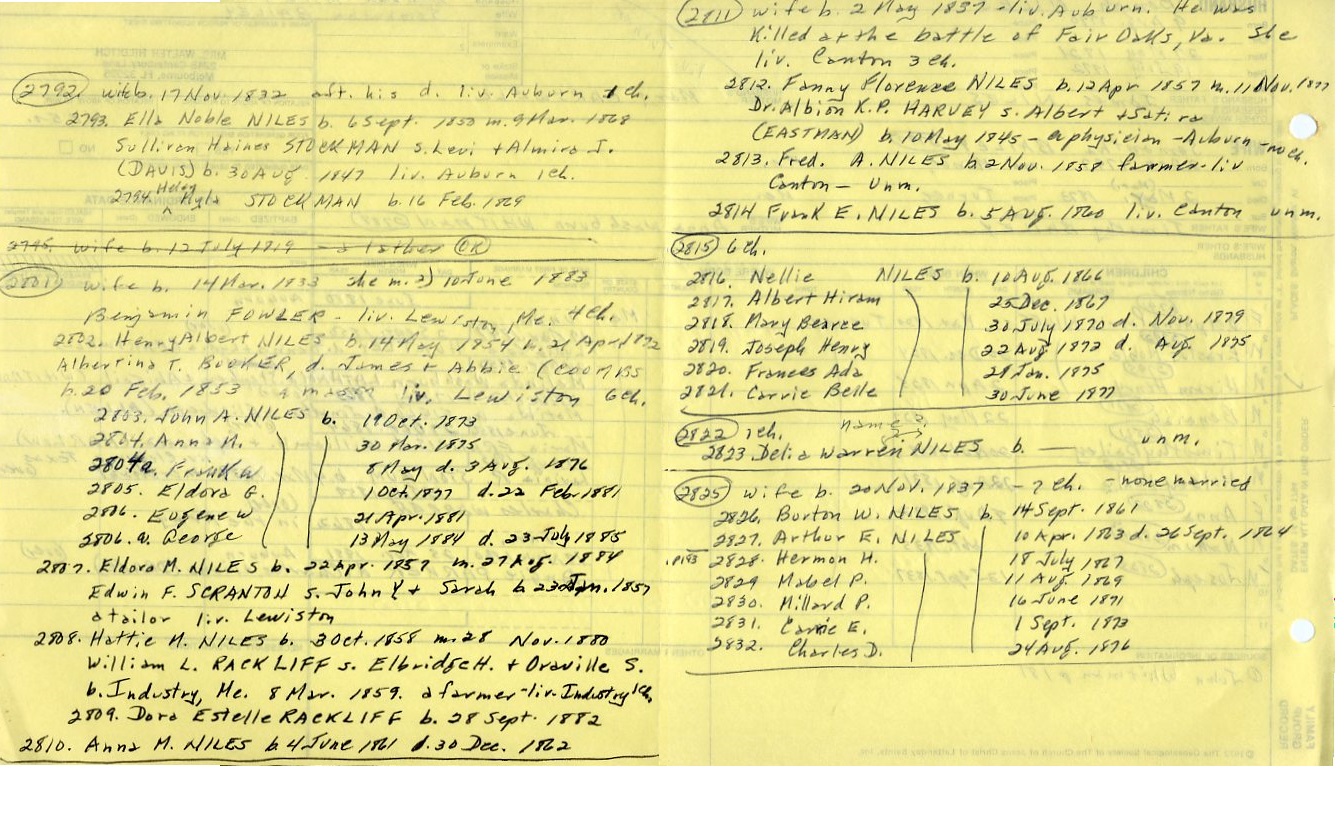 2792 wife b. 17 Nov 1832 aft. his d. liv. Auburn 1ch.
2793. Ella Noble NILES b. 6 Sept. 1850 m. 9 Mar. 1868
Sullivan Haines STOCKMAN s. Levi + Almira J.
(DAVIS) b. 30 Aug 1847 liv. Auburn 1ch.
2794. Hyla STOCKMAN b. 16 Feb. 1869
2795. wife b. 12 July 1819 father OK
2801 wife b. 14 Mar. 1833 she m. 2) 10 June 1883
Benjamin FOWLER - liv. Lewiston, Me. 4ch.
2802. Henry Albert NILES b. 14 May 1854 m. 21 Apr 1872
Albertina T. BOOKER, d. James + Abbie (COOMBS
b. 20 Feb. 1853 a mason liv. Lewiston 6ch.
2803. John A. NILES b. 19 Oct. 1873
2804. Anna M. 30 Mar. 1875
2804a. Frank W. 8 May d. 3 Aug. 1876
2805. Eldora G. 1 Oct. 1877 d. 22 Feb. 1881
2806. Eugene W 21 Apr. 1881
2806.a. George 13 May 1884 d. 23 July 1885
2807. Eldora M. NILES b. 22 Apr. 1857 m. 27 Aug. 1884
Edwin F. SCRANTON s. John Y + Sarah b. 23 Jan. 1857
a tailor liv. Lewiston
2808. Hattie M. NILES b. 3 Oct. 1858 m. 28 Nov. 1880
William L. RACKLIFF s. Elbridge H. + Oraville S.
b. Industry, Me. 8 Mar. 1859. a farmer - liv. Industry 1ch.
2809. Dora Estelle RACKLIFF b. 28 Sept. 1882
2810. Anna M. NILES b. 4 June 1861 d. 30 Dec. 1862
2811 wife b. 2 May 1837 - liv. Auburn. He was
Killed at the battle of Fair Oaks, Va. She
liv. Canton 3 ch.
2812. Fanny Florence NILES b. 12 Apr 1857 m. 11 Nov. 1877
Dr. Albion K.P. HARVEY s. Albert + Satira
(EASTMAN) b. 10 May 1845 - a physician - Auburn - no ch.
2813. Fred. A. NILES b. 2 Nov. 1858 farmer - liv
Canton - Unm.
2814 Frank E. NILES b. 5 Aug. 1860 liv. Canton unm.
2815 6 ch.
2816. Nellie NILES b. 10 Aug. 1866
2817. Albert Hiram 25 Dec. 1867
2818. Mary Bearce 30 July 1870 d. Nov. 1879
2819. Joseph Henry 22 Aug 1872 d. Aug. 1875
2820. Frances Ada 28 Jan. 1875
2821. Carrie Belle 30 June 1877
2822 1 ch. name?
2823. Delia Warren NILES b. — unm.
2825 wife b. 20 Nov. 1837 - 7 ch. - none married
2826. Burton W. NILES b. 14 Sept. 1861
2827. Arthur E. NILES 10 Apr. 1863 d. 26 Sept. 1864
p193 2828. Hermon H. 18 July 1867
2829 Mabel P. 11 Aug. 1869
2830. Millard P. 16 June 1871
2831. Carrie E. 1 Sept. 1873
2832. Charles D. 24 Aug. 1876